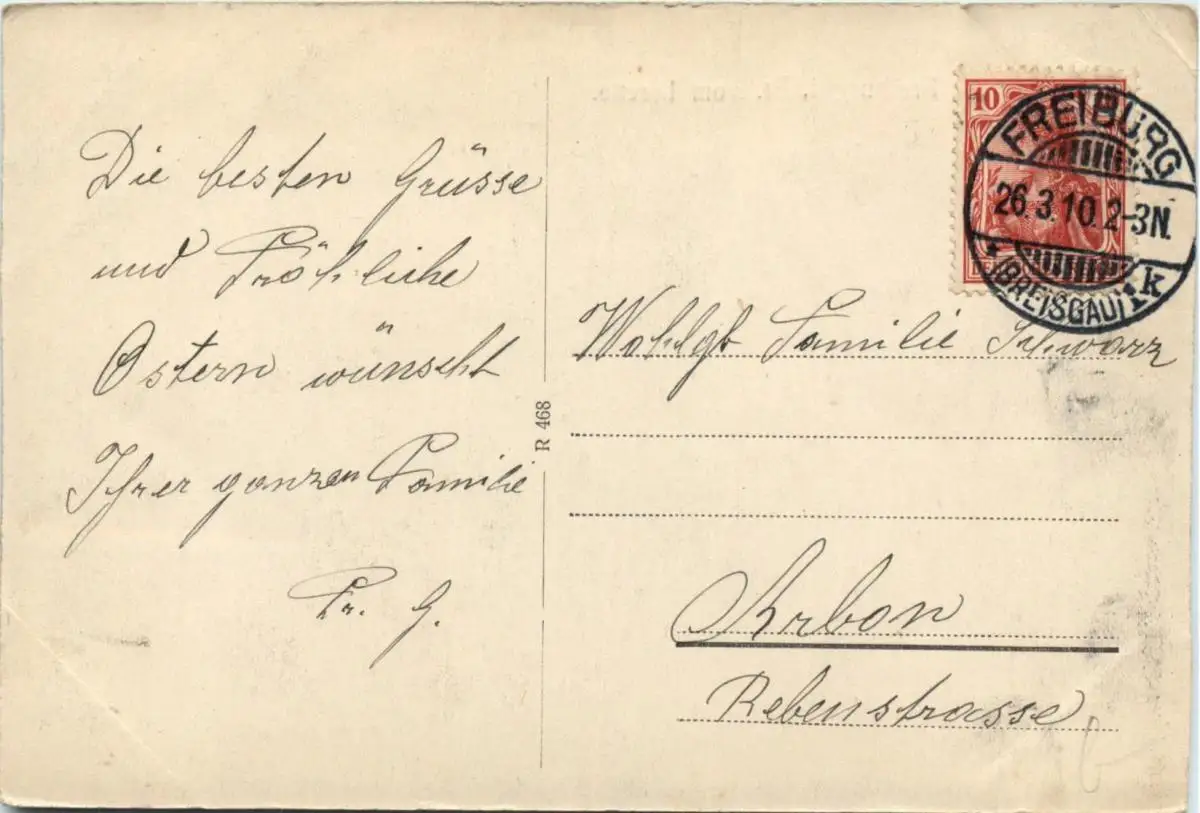 Die besten Grüsse
und Fröhliche
Ostern wünscht
Ihrer ganzen Familie
Fr. G.
R 468
10
FREIBURG
26.3.10.2-3N.
* (BREISGAU) 1k
Wohlgb Familie Schwarz
Arbon
Rebenstrasse